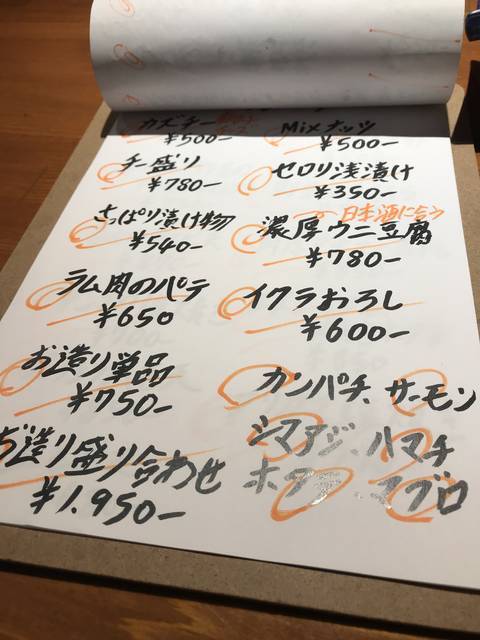 カズチー
¥500-
Mixナッツ
¥500-
チー盛り
¥780-
セロリ浅漬け
¥350-
さっぱり漬け物
¥540-
日本酒に合う
濃厚ウニ豆腐
¥780-
ラム肉のパテ
¥650
イクラおろし
¥600-
お造り単品
¥750-
カンパチ、サーモン
お造り盛り合わせ
¥1.950-
シマアジ、ハマチ
ホタテ、マグロ